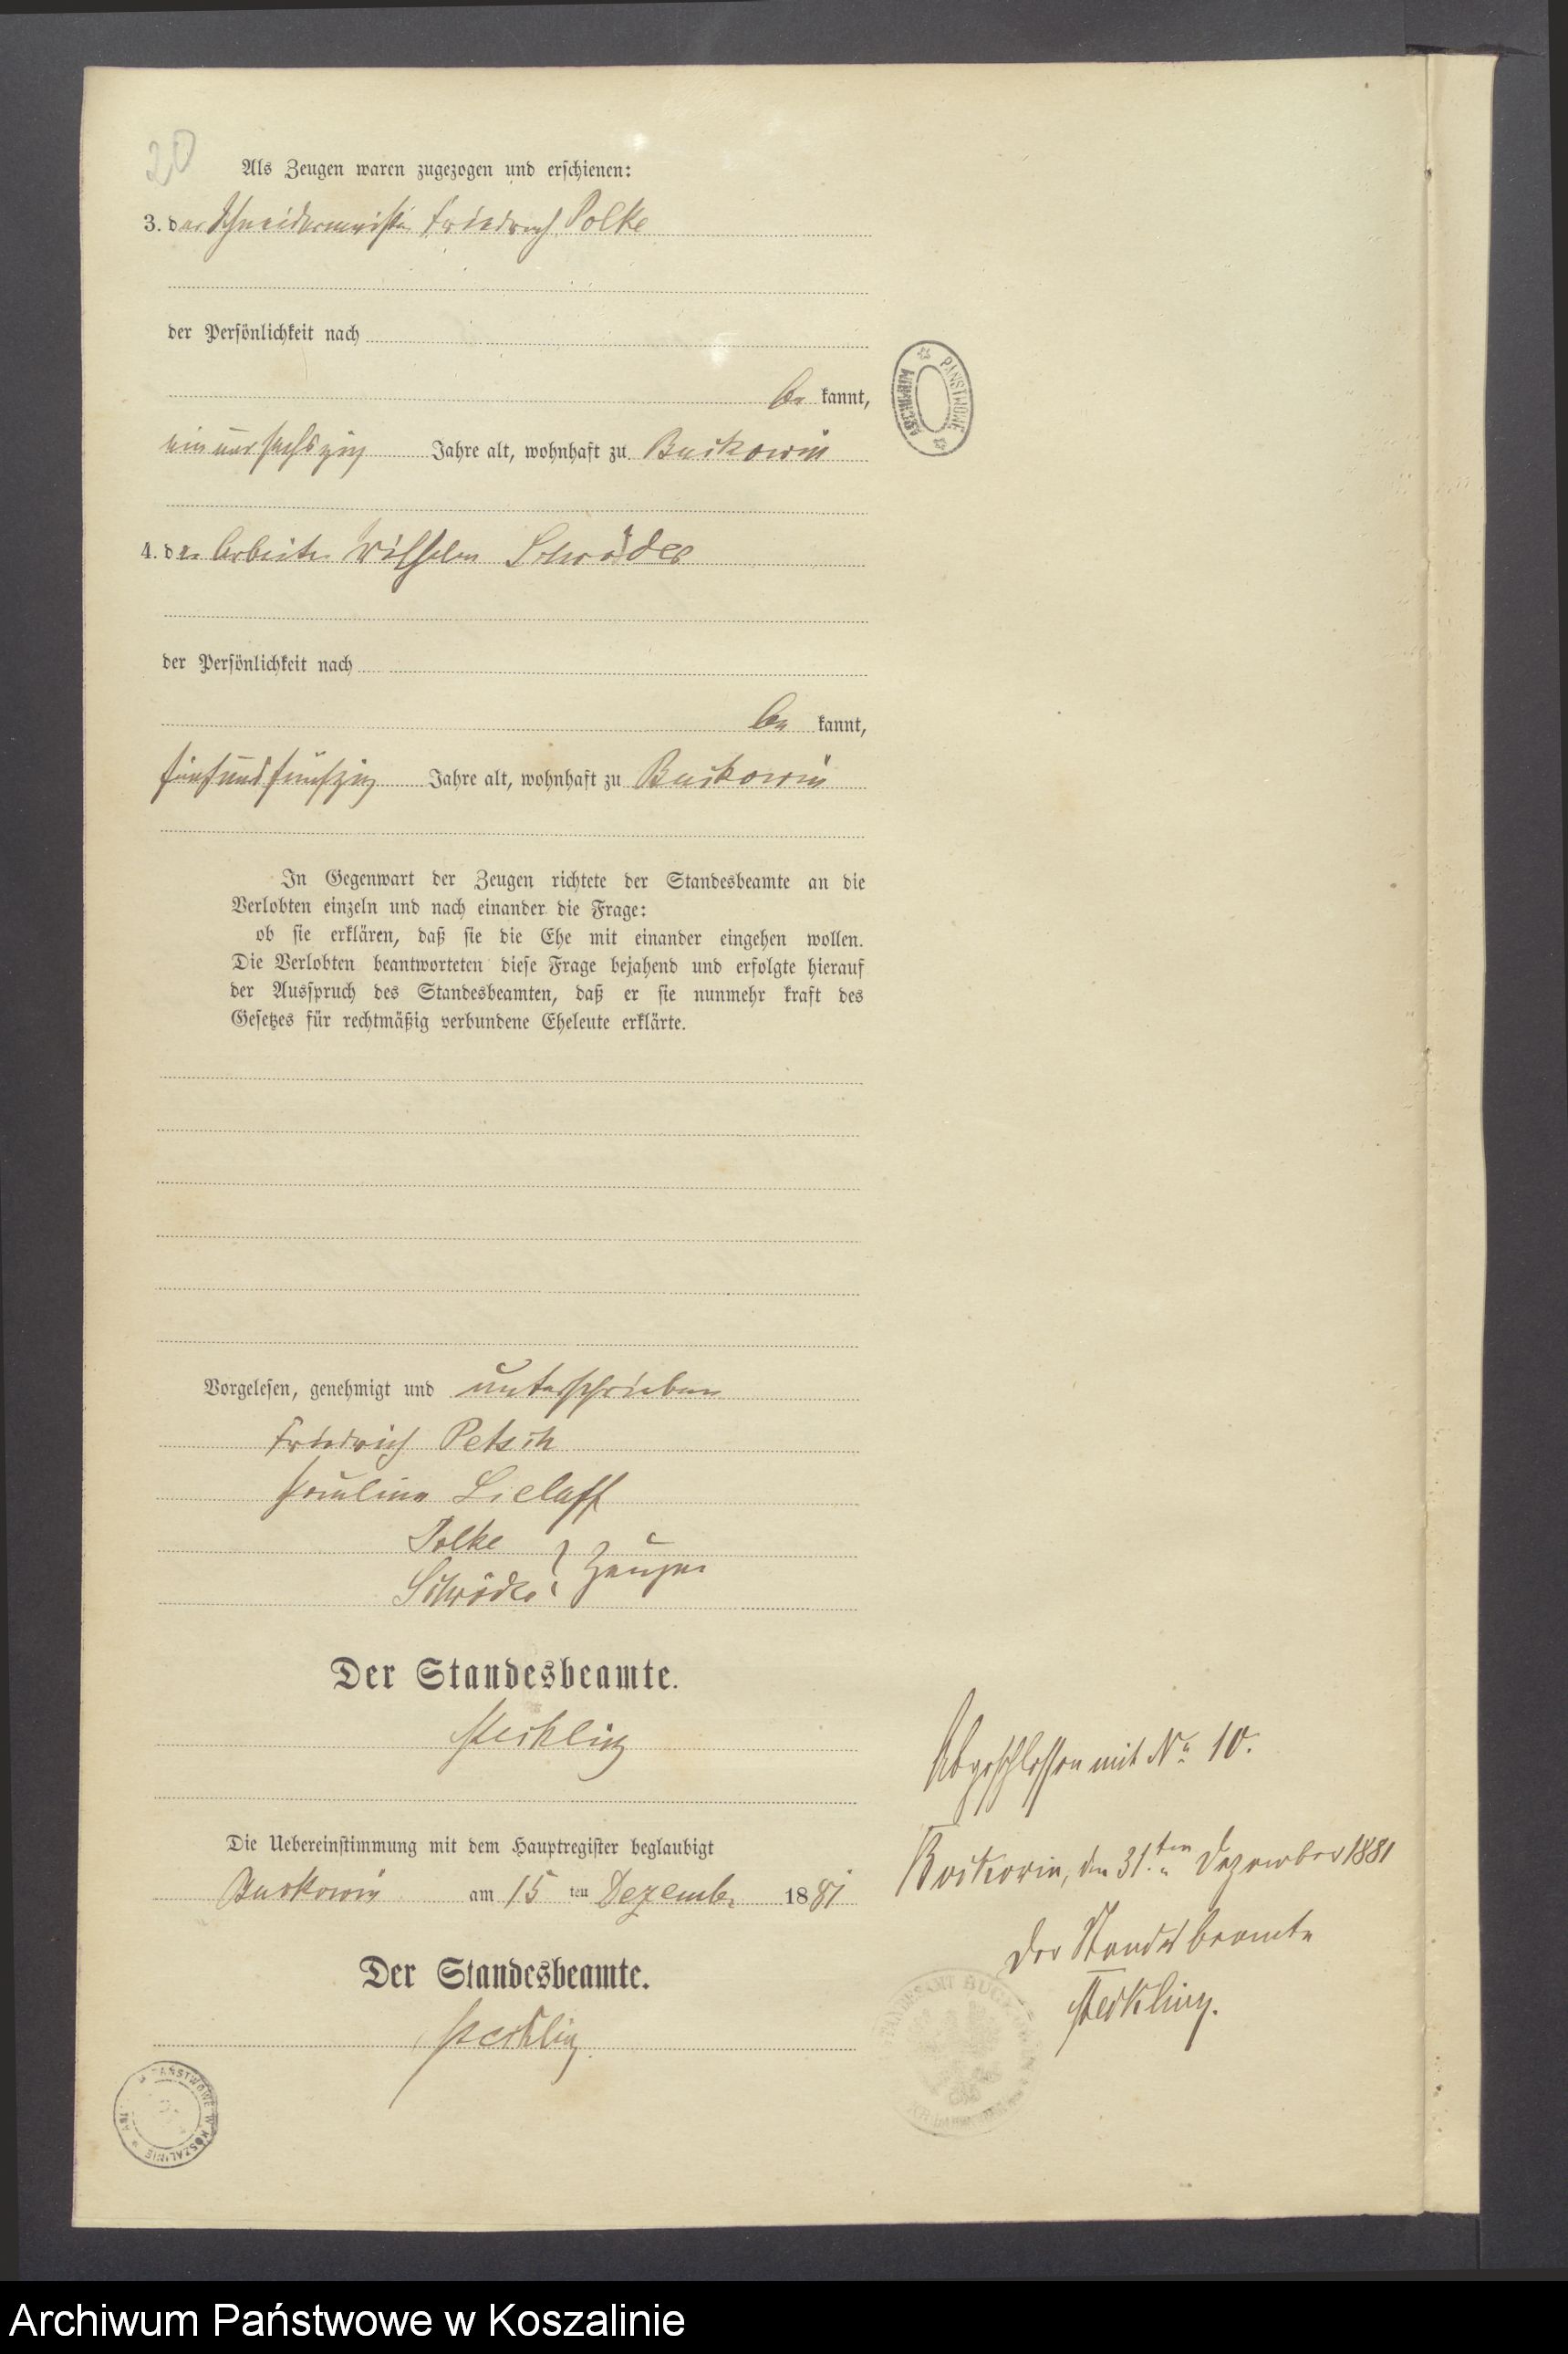 20
Als Zeugen waren zugezogen und erschienen:
3. der Schneidermeister Friedrich Polke
der Persönlichkeit nach
be kannt,
ein und sechszig Jahre alt, wohnhaft zu Buckowin
4. der Arbeiter Wilhelm Schröder
der Persönlichkeit nach
be kannt,
fünf und fünfzig Jahre alt, wohnhaft zu Buckowin
In Gegenwart der Zeugen richtete der Standesbeamte an die
Verlobten einzeln und nach einander die Frage:
ob sie erklären, daß sie die Ehe mit einander eingehen wollen.
Die Verlobten beantworteten diese Frage bejahend und erfolgte hierauf
der Ausspruch des Standesbeamten, daß er sie nunmehr kraft des
Gesetzes für rechtmäßig verbundene Eheleute erklärte.
Vorgelesen, genehmigt und unterschrieben
Friedrich Petsch
Pauline Lielaff
Polke
Schröder } Zeugen
Der Standesbeamte.
Die Uebereinstimmung mit dem Hauptregister beglaubigt
Buckowin am 15 ten Dezember 1881
Der Standesbeamte.
Abgeschlossen mit No 10.
Buckowin, den 31.ten Dezember 1881
Der Standesbeamte
ARCHIWUM PAŃSTWOWE
PAŃSTWOWE W KOSZALINIE
STANDESAMT
Archiwum Państwowe w Koszalinie